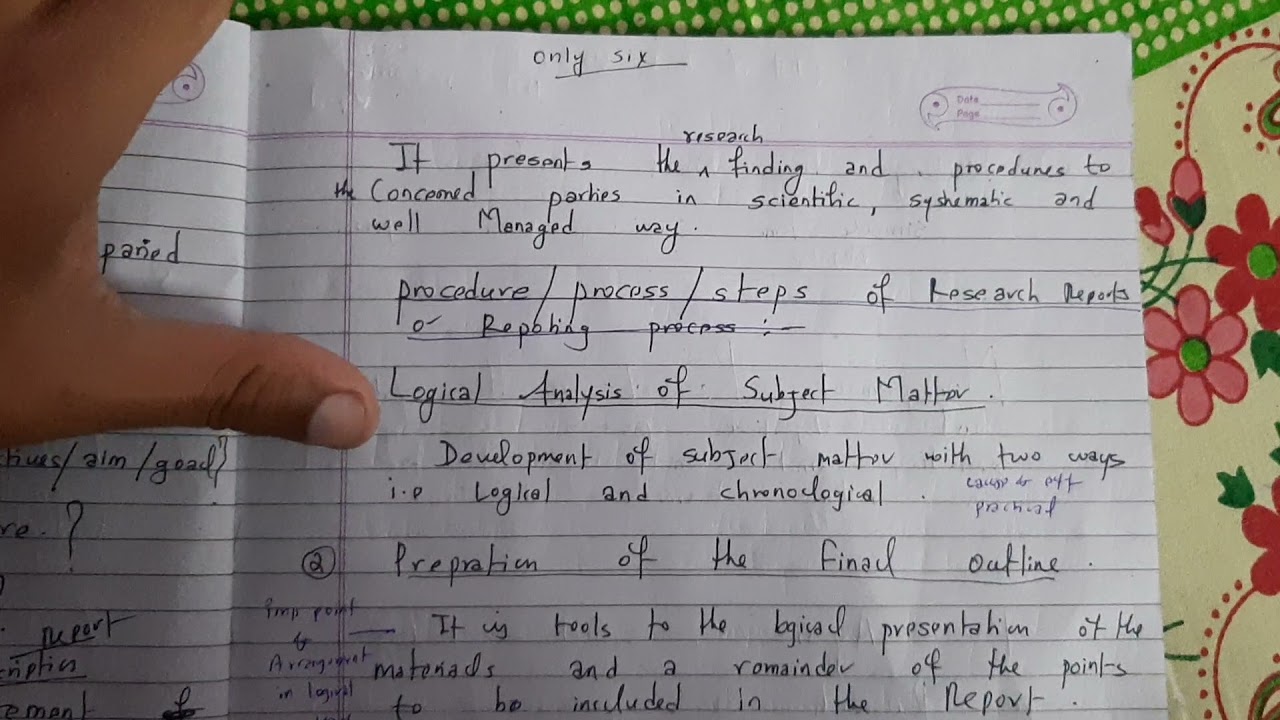 only six
Date
Page
research
It presents the ^ finding and procedures to
the Concerned parties in scientific, systematic and
well Managed way.
paried
procedure/process/steps of Research Reports
or Reporting process :-
Logical Analysis of Subject Matter.
tives/aim/goal?
Development of subject matter with two ways
i.e Logical and chronological.
cause & eff
re. ?
② Prepration of the final outline.
Imp point
&
Arrangement
in logical
report
It is tools to the logical presentation of the
materials and a remainder of the points
to be included in the Report.
ription
ement of